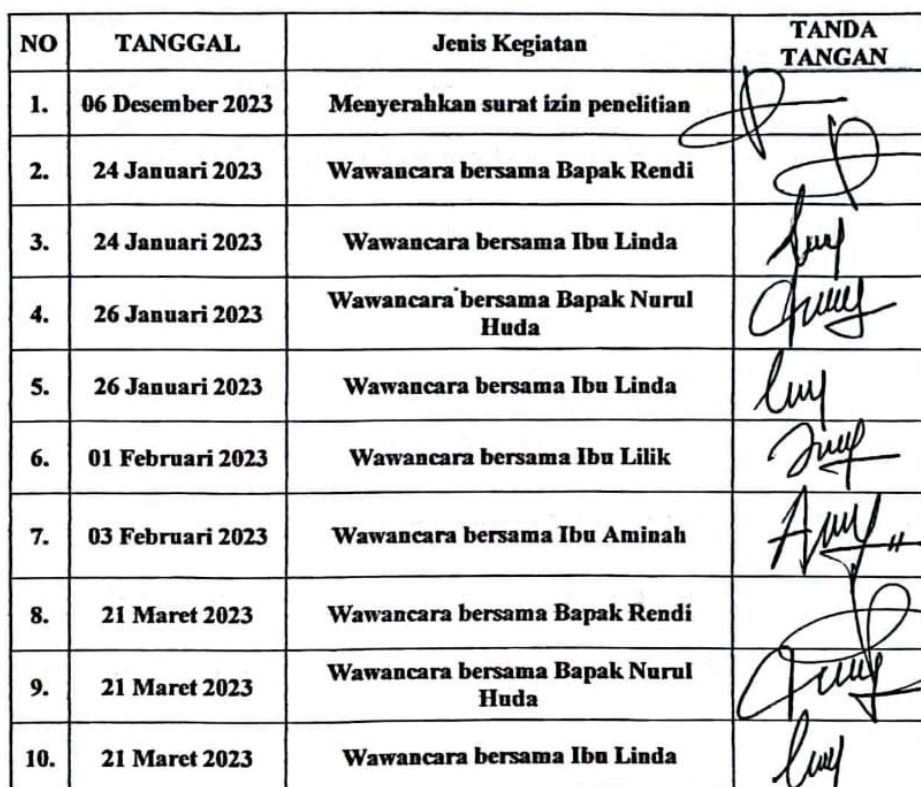 NO TANGGAL Jenis Kegiatan TANDA
TANGAN
1. 06 Desember 2023 Menyerahkan surat izin penelitian
2. 24 Januari 2023 Wawancara bersama Bapak Rendi
3. 24 Januari 2023 Wawancara bersama Ibu Linda
4. 26 Januari 2023 Wawancara bersama Bapak Nurul
Huda
5. 26 Januari 2023 Wawancara bersama Ibu Linda
6. 01 Februari 2023 Wawancara bersama Ibu Lilik
7. 03 Februari 2023 Wawancara bersama Ibu Aminah
8. 21 Maret 2023 Wawancara bersama Bapak Rendi
9. 21 Maret 2023 Wawancara bersama Bapak Nurul
Huda
10. 21 Maret 2023 Wawancara bersama Ibu Linda